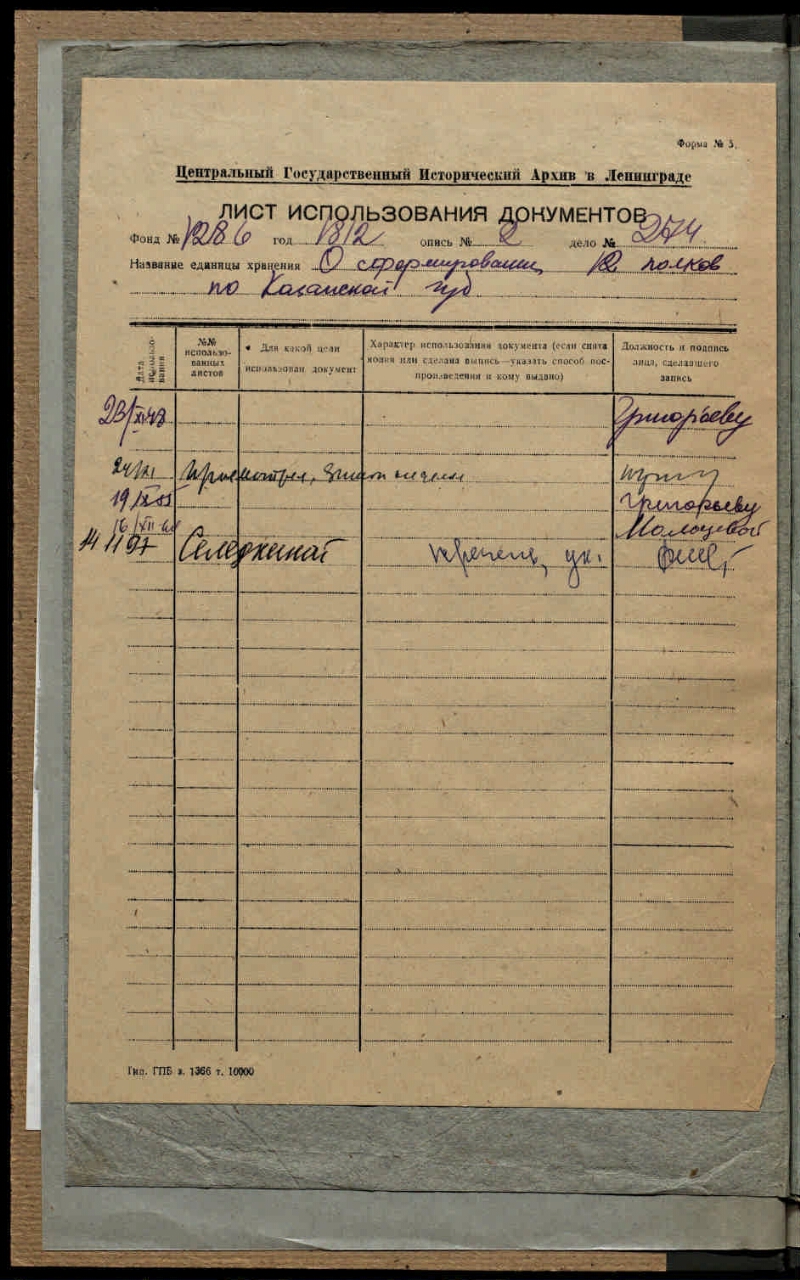 Форма № 5.
Центральный Государственный Исторический Архив в Ленинграде
ЛИСТ ИСПОЛЬЗОВАНИЯ ДОКУМЕНТОВ
Фонд № 1286 год 1812 опись № 2 дело № 274
Название единицы хранения О сформировании 12 полков
по Казанской губ
Дата использования
№№ использованных листов
Для какой цели использован документ
Характер использования документа (если снята копия или сделана выпись—указать способ воспроизведения и кому выдано)
Должность и подпись лица, сделавшего запись
Григорьеву
24/XI
Григорьеву
16/XII
14 11 97 Селедкина
Тип. ГПБ з. 1366 т. 10000